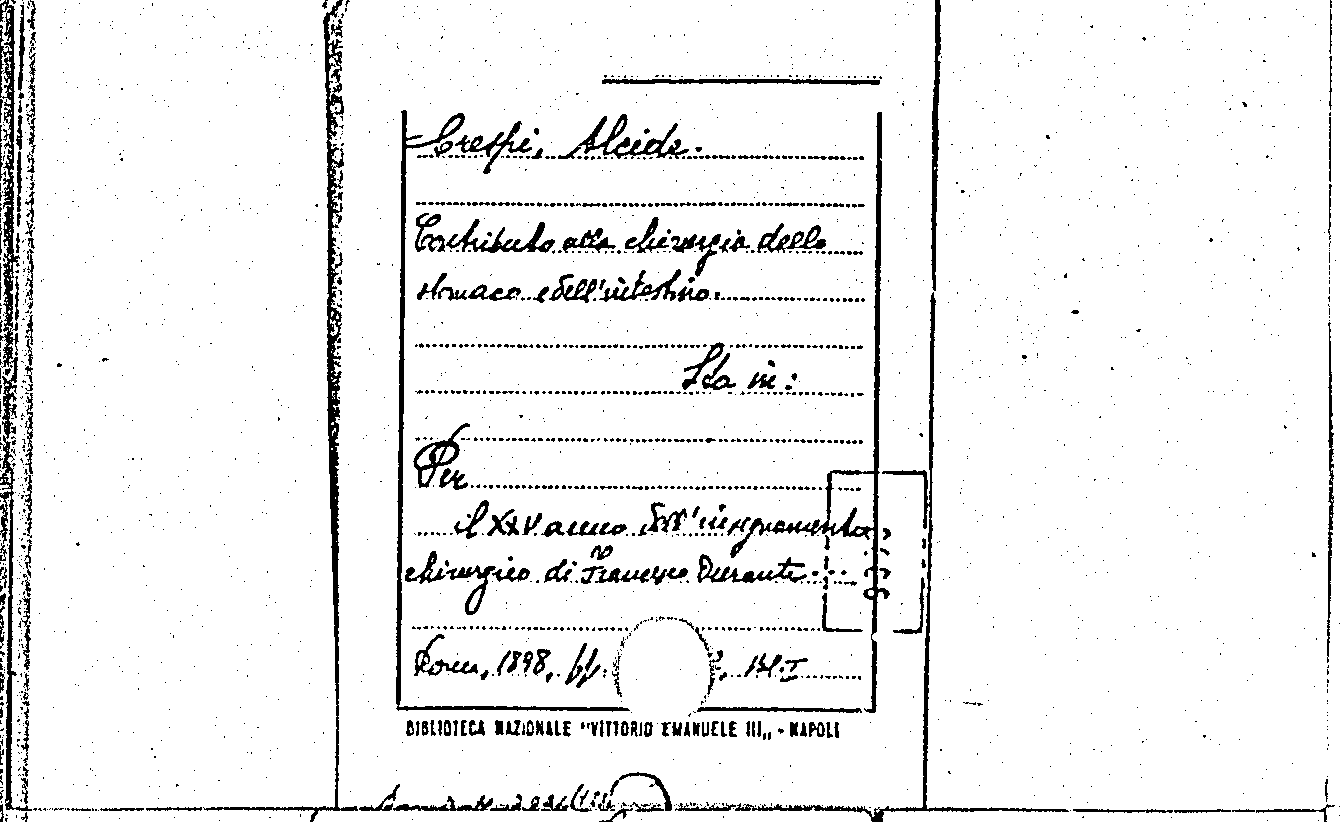 Crespi, Alcide.
Contributo alla chirurgia dello
stomaco e dell'intestino.
Sta in:
Per
il XXV anno dell'insegnamento
chirurgico di Francesco Durante...
Roma, 1898,
BIBLIOTECA NAZIONALE "VITTORIO EMANUELE III„ - NAPOLI